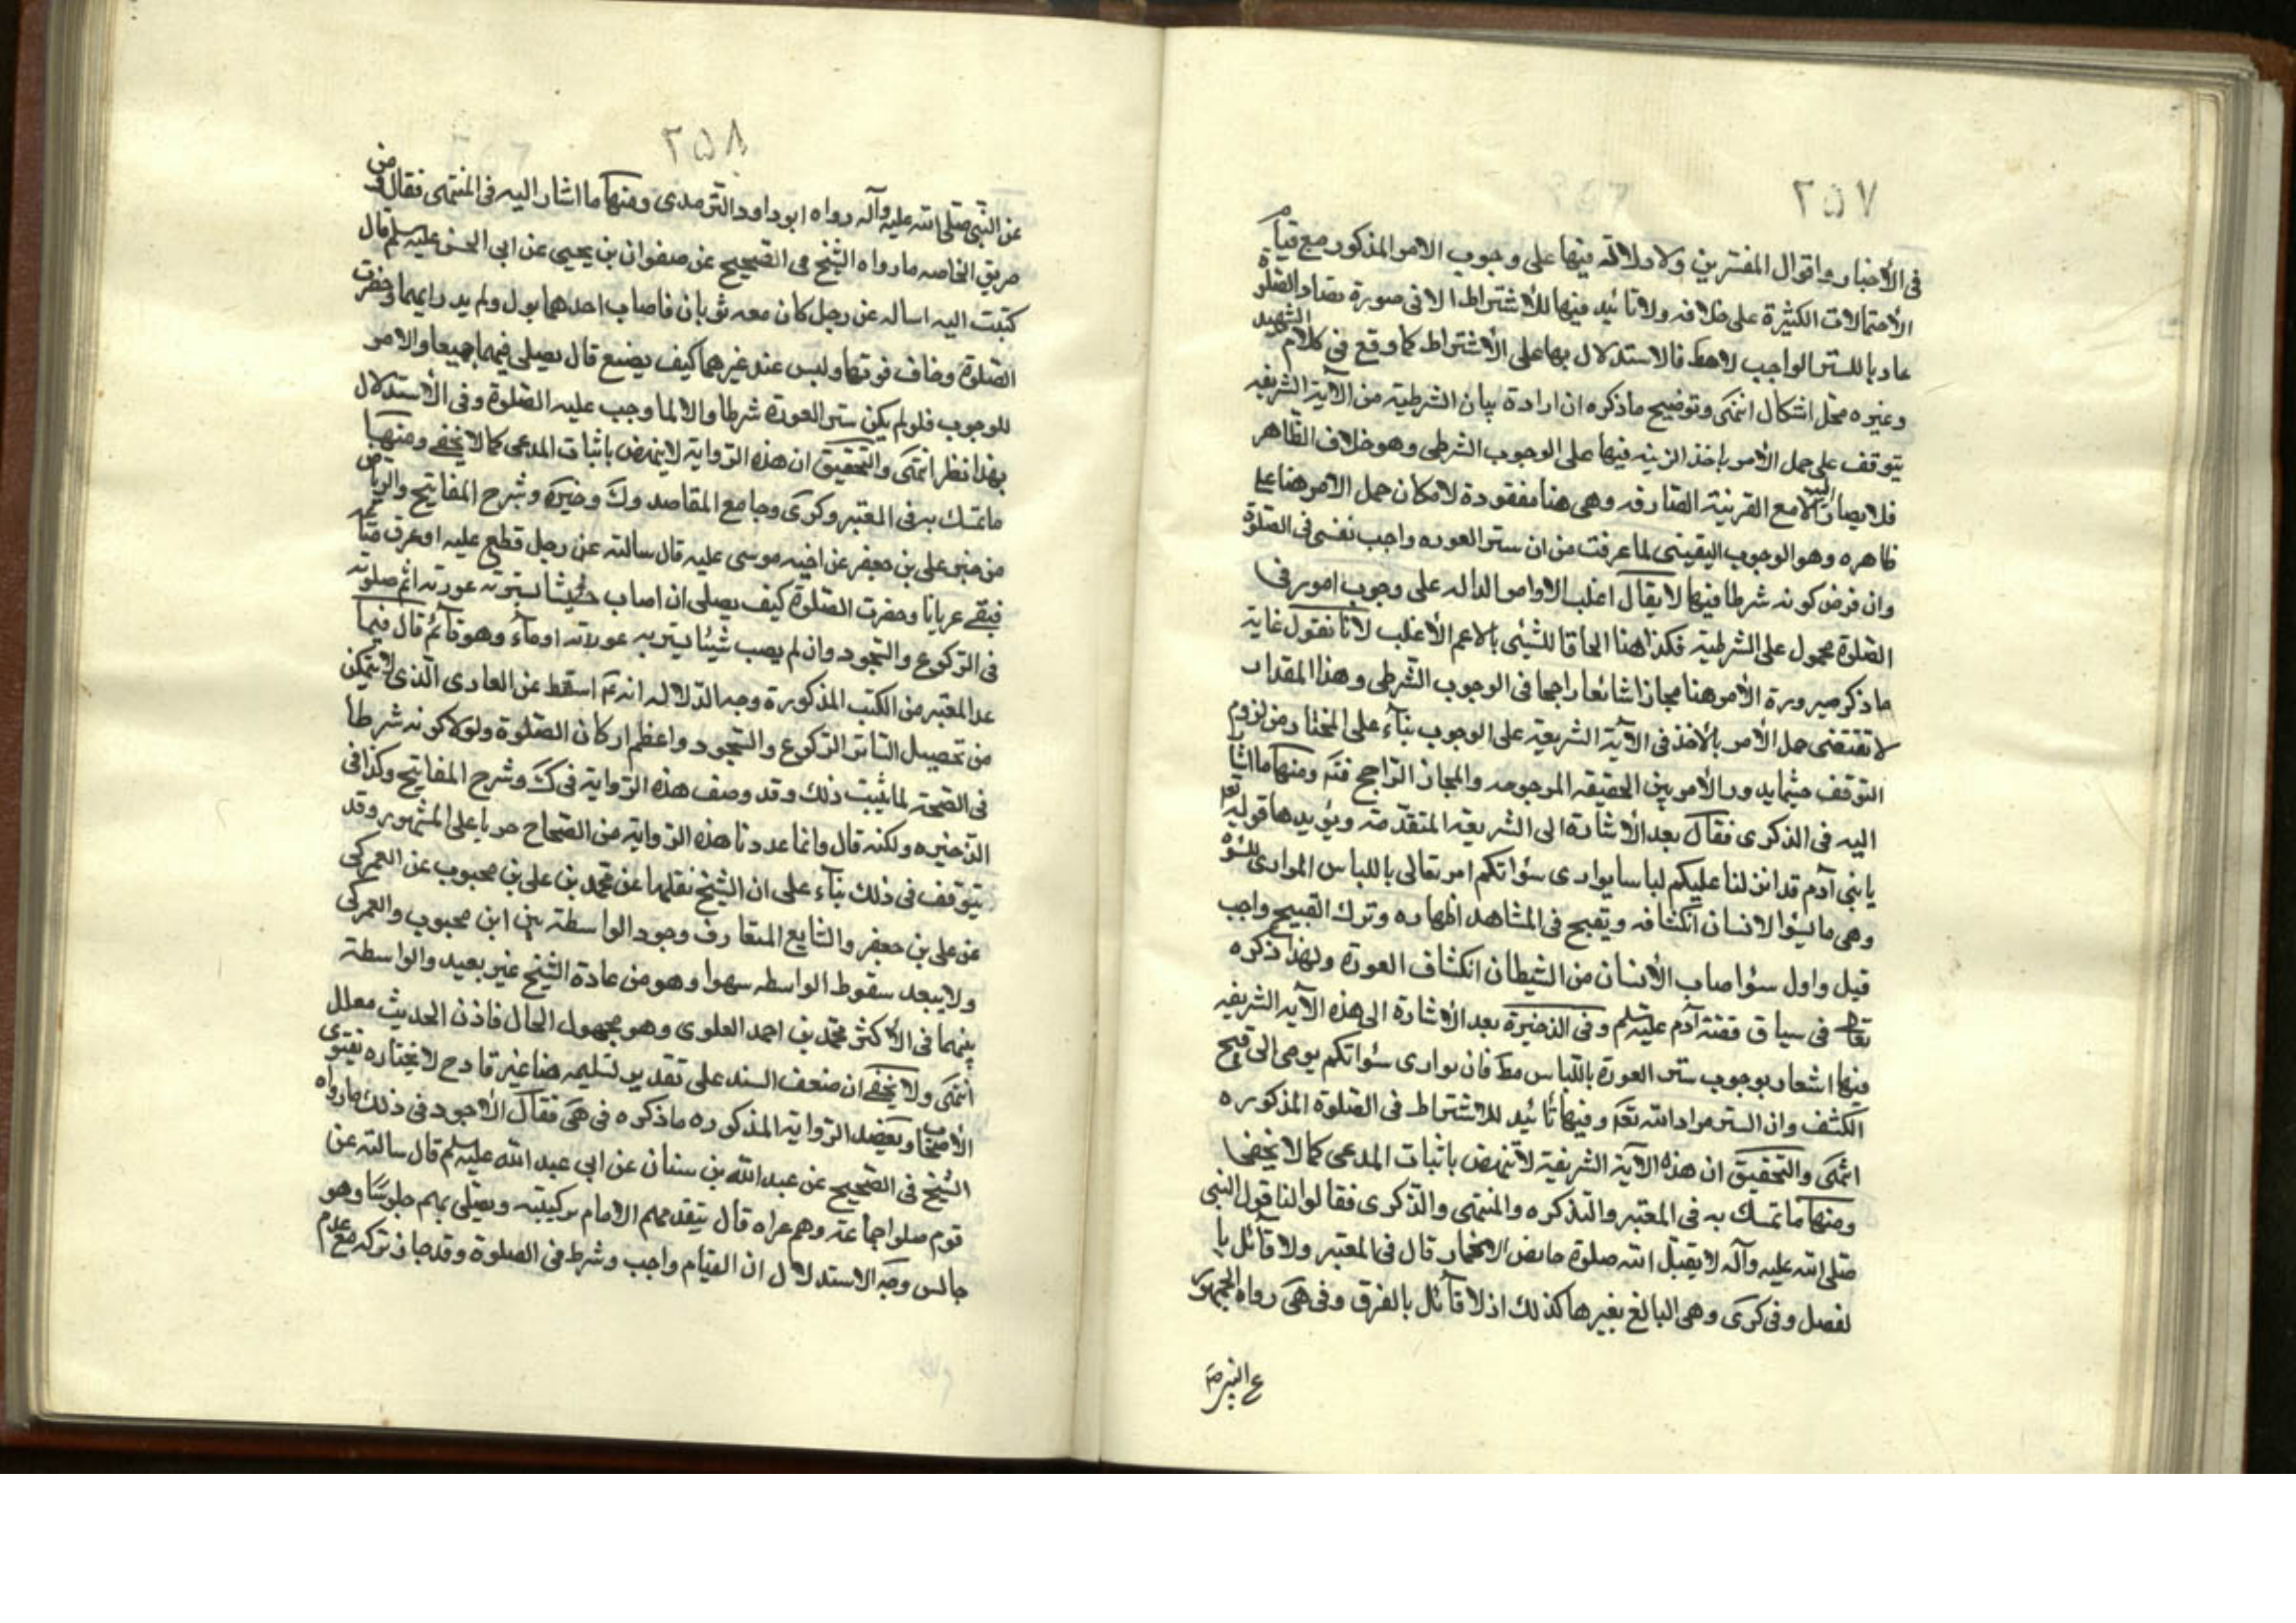 ٢٥٧
في الأخبار واقوال المفسرين ولا دلالة فيها على وجوب الامر المذكور مع قيام
الأحتمالات الكثيرة على خلافه ولا تائيد فيها للأشتراط الا في صورة تضاد الصلوة
عاريا للستر الواجب لاهط فالاستدلال بها على الأشتراط كما وقع في كلام الشهيد
وغيره محل اشكال انتهى وتوضيح ما ذكره ان ارادة بيان الشرطية من الآية الشريفه
يتوقف على حمل الأمر باخذ الزينه فيها على الوجوب الشرطى وهو خلاف الظاهر
فلا يصار اليه الا مع القرينة الصارفه وهى هنا مفقودة لامكان حمل الامر هنا على
ظاهره وهو الوجوب اليقيني لما عرفت من ان ستر العوره واجب نفسى فى الصلوة
وان فرض كونه شرطا فيها لا يقال اغلب الاوامر الداله على وجوب امور فى
الصلوة محمول على الشرطية فكذا هنا الحاقا للشيئ بالاعم الأغلب لانا نقول غاية
ما ذكر صيرورة الأمر هنا مجازا شائعا راجحا فى الوجوب الشرطى وهذا المقدار
لا تقتضى حمل الأمر بالأخذ فى الآية الشريعة على الوجوب بناء على المختار من لزوم
التوقف حيثما يدور الأمر بين الحقيقه المرجوحه والمجاز الراجح فتم ومنها ما اشار
اليه فى الذكرى فقال بعد الأشارة الى الشريعه المتقدمة ويؤيدها قوله تعا
يا بنى آدم قد انزلنا عليكم لباسا يوارى سؤاتكم امر تعالى باللباس الموارى للسؤة
وهى ما يسؤا الانسان انكشافه ويقبح فى المشاهد اظهاره وترك القبيح واجب
قيل واول سؤا صاب الأنسان من الشيطان انكشاف العورة ولهذا ذكره
تعا فى سياق قصة آدم عليه سلم وفى الذخيرة بعد الأشارة الى هذه الآيه الشريفه
فيها اشعار بوجوب ستر العورة باللباس مط فان يوارى سئواتكم يومى الى قبح
الكشف وان الستر مراد الله تعم وفيها تائيد للاشتراط فى الصلوة المذكوره
انتهى والتحقيق ان هذه الآية الشريفة لا تنهض باثبات المدعى كما لا يخفى
ومنها ما تمسك به فى المعتبر والتذكره والمنتهى والذكرى فقالوا لنا قول النبى
صلى الله عليه وآله لا يقبل الله صلوة حايض الا بخمار قال فى المعتبر ولا قائل با
لفصل وفى كرى وهى البالغ بغيرها كذلك اذ لا قائل بالفرق وفى هى رواه الجمهور
٢٥٨
عن النبى صلى الله عليه وآله رواه ابو داود الترمدى ومنها ما اشار اليه فى المنتهى فقال ومن
طريق الخاصه ما رواه الشيخ فى الصحيح عن صفوان بن يحيى عن ابى الحسن عليه سلم قال
كتبت اليه اساله عن رجل كان معه ثوبان فاصاب احدهما بول ولم يدر ايهما وحضرت
الصلوة وخاف فوتها وليس عنده غيرهما كيف يصنع قال يصلى فيهما جميعا والامر
للوجوب فلو لم يكن ستر العورة شرطا والا لما وجب عليه الصلوة وفى الأستدلال
بهذا نظر انتهى والتحقيق ان هذه الرواية لا ينهض باثبات المدعى كما لا يخفى ومنها
ما تمسك به فى المعتبر وكرى وجامع المقاصد وك وخيره وشرح المفاتيح والرياض
من خبر على بن جعفر عن اخيه موسى عليه قال سالته عن رجل قطع عليه او غرق متاعه
فبقى عريانا وحضرت الصلوة كيف يصلى ان اصاب حشيشا يستر به عورته اتم صلوته
فى الركوع والسجود وان لم يصب شيئا يستر به عورته اوماء وهو قائم قال فيما
عدا المعتبر من الكتب المذكورة وجه الدلاله انه عم اسقط عن العارى الذى لا يتمكن
من تحصيل الساتر الركوع والسجود واعظم اركان الصلوة ولولا كونه شرطا
فى الصحة لما يثبت ذلك وقد وصف هذه الرواية فى ك وشرح المفاتيح وكذا فى
الذخيره ولكنه قال وانما عددنا هذه الرواية من الصحاح جريا على المشهور وقد
يتوقف فى ذلك بناء على ان الشيخ نقلها عن محمد بن على بن محبوب عن العمركى
عن على بن جعفر والشايع المتعارف وجود الواسطة بين ابن محبوب والعمركى
ولا يبعد سقوط الواسطه سهوا وهو من عادة الشيخ غير بعيد والواسطة
بينهما فى الأكثر محمد بن احمد العلوى وهو مجهول الحال فاذن الحديث معلل
انتهى ولا يخفى ان ضعف السند على تقدير تسليمه هنا غير قادح لا نختاره بفتوى
الأصحاب ويعضد الرواية المذكوره ما ذكره فى هى فقال الأجود فى ذلك ما رواه
الشيخ فى الصحيح عن عبد الله بن سنان عن ابى عبد الله عليه سلم قال سالته عن
قوم صلوا جماعة وهم عراه قال يتقدمهم الامام بركبتيه ويصلى بهم جلوسا وهو
جالس وجه الاستدلال ان القيام واجب وشرط فى الصلوة وقد جاز تركه مع عدم